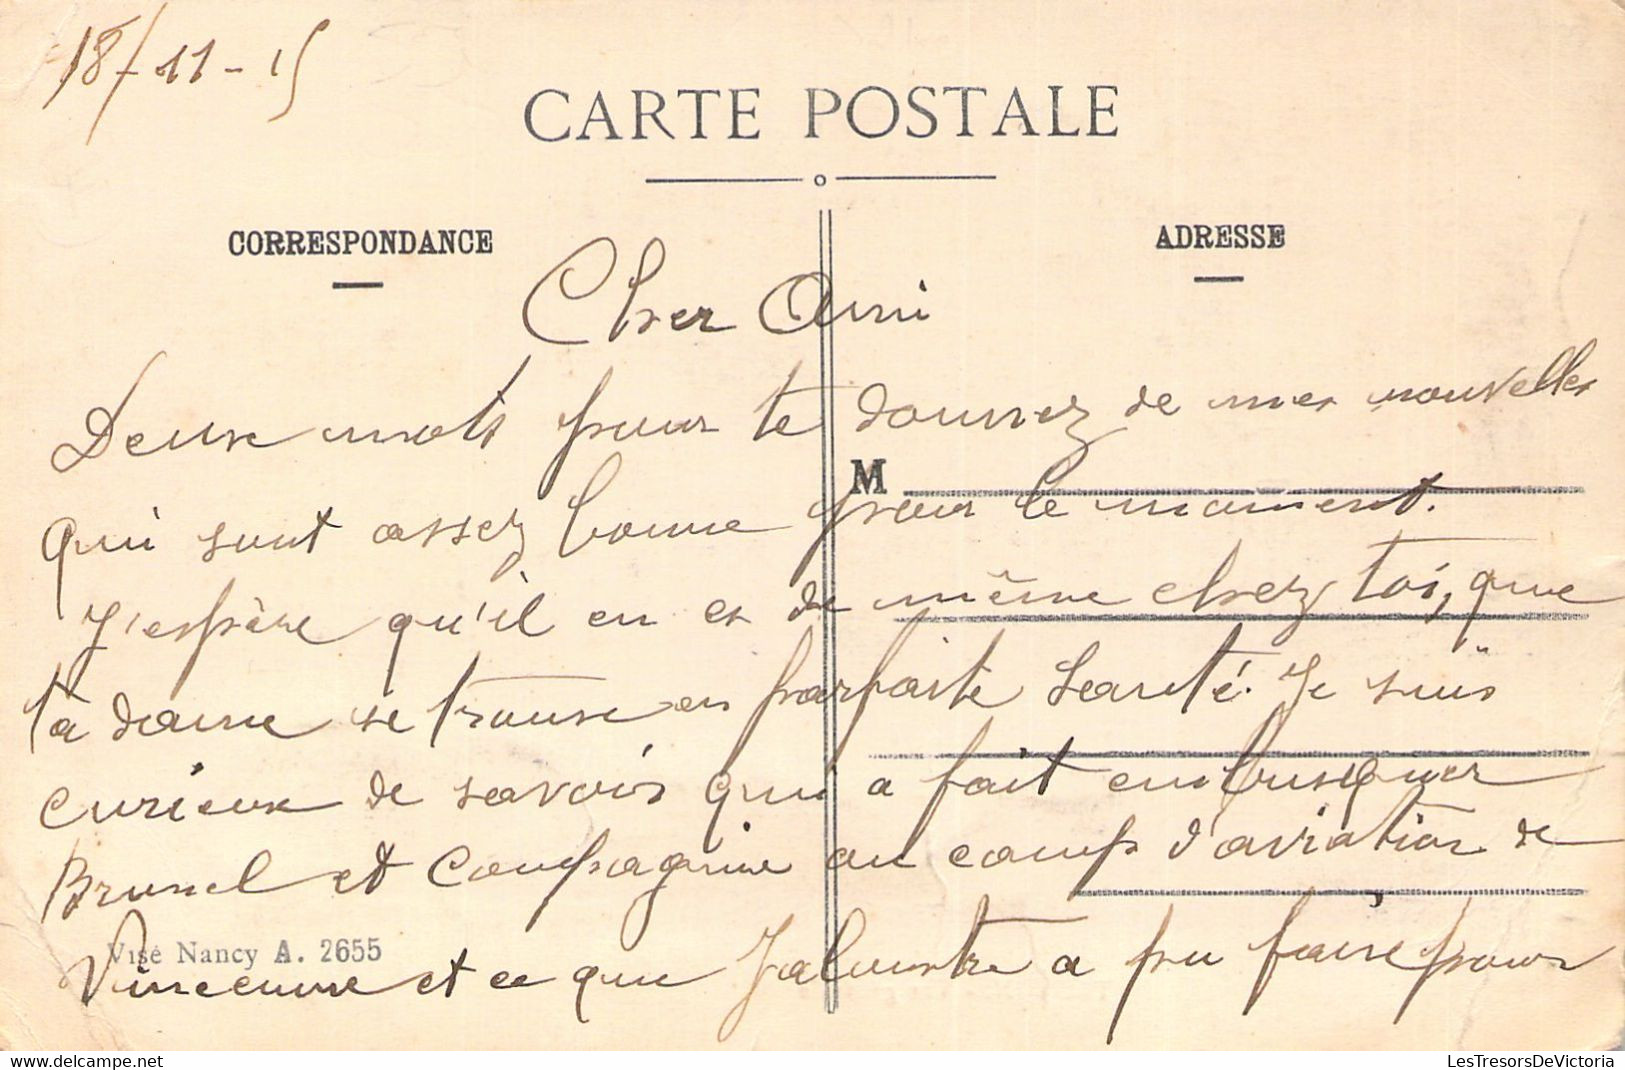 18/-11-15
CARTE POSTALE
CORRESPONDANCE
ADRESSE
Cher Ami
Deux mots pour te donnez de mes nouvelles
M
qui sont assez bonne pour le moment.
J'espère qu'il en es de même chez toi, que
ta dame se trouve en parfaite Santé. Je suis
curieux de savoir qui a fait embusquer
Brunel et Compagnie au camp d'aviation de
Visé Nancy A. 2655
Vincenne et ce que a pu faire pour
LesTresorsDeVictoria